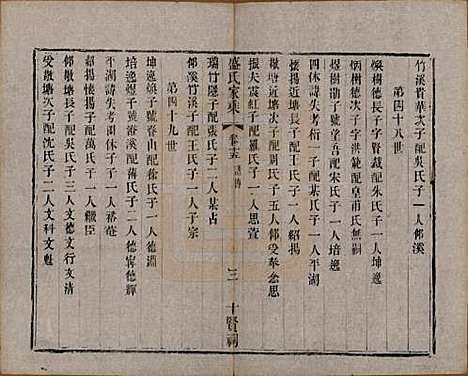 竹溪晋華次子配吳氏子一人邻溪
第四十八世
煥樹德長子字賢裁配朱氏子一人德
炳樹德次子字洪範配皇甫氏無嗣
煜樹勛子號堂吾配宋氏子一人培逸
四休詩失考衍一子配某氏子一人平湖
懷揚近塘長子配吳氏子一人紹揚
墩塘近塘次子配周氏子五人邻受奉念振
振夫震虹子配羅氏子一人思萱
瑞竹隱子配張氏子二人某古
邻溪竹溪子配王氏子一人于宗
第四十九世
坤逸煥子號脊山配徐氏子一人德淵
培逸煜子號滄溪配蔣氏子二人德寗德輝
平湖詩失考四休子一人裕菴
紹揚懷揚子配葉氏子一人繼臣
邻墩塘長子配方氏子三人文德文清
受墩塘次子配沈氏子二人文科文魁
盛氏家乘
卷十五
三
十賢祠